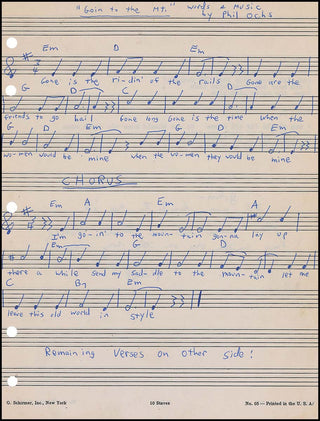 "Goin to the Mt." words & Music
by Phil Ochs
Em D Em
Gone is the ri-din' of the rails Gone are the
G D C D
friends to go bail Gone long Gone is the time when the
G D Em G D Em
wo-men would be mine when the wo-men they would be mine
CHORUS
Em A Em A
I'm go-in' to the moun-tain gon-na lay up
Em G D
there a while send my sad-dle to the moun-tain let me
C B7 Em
leave this old world in style
Remaining verses on other side!
G. Schirmer, Inc., New York 10 Staves No. 05 — Printed in the U. S. A.